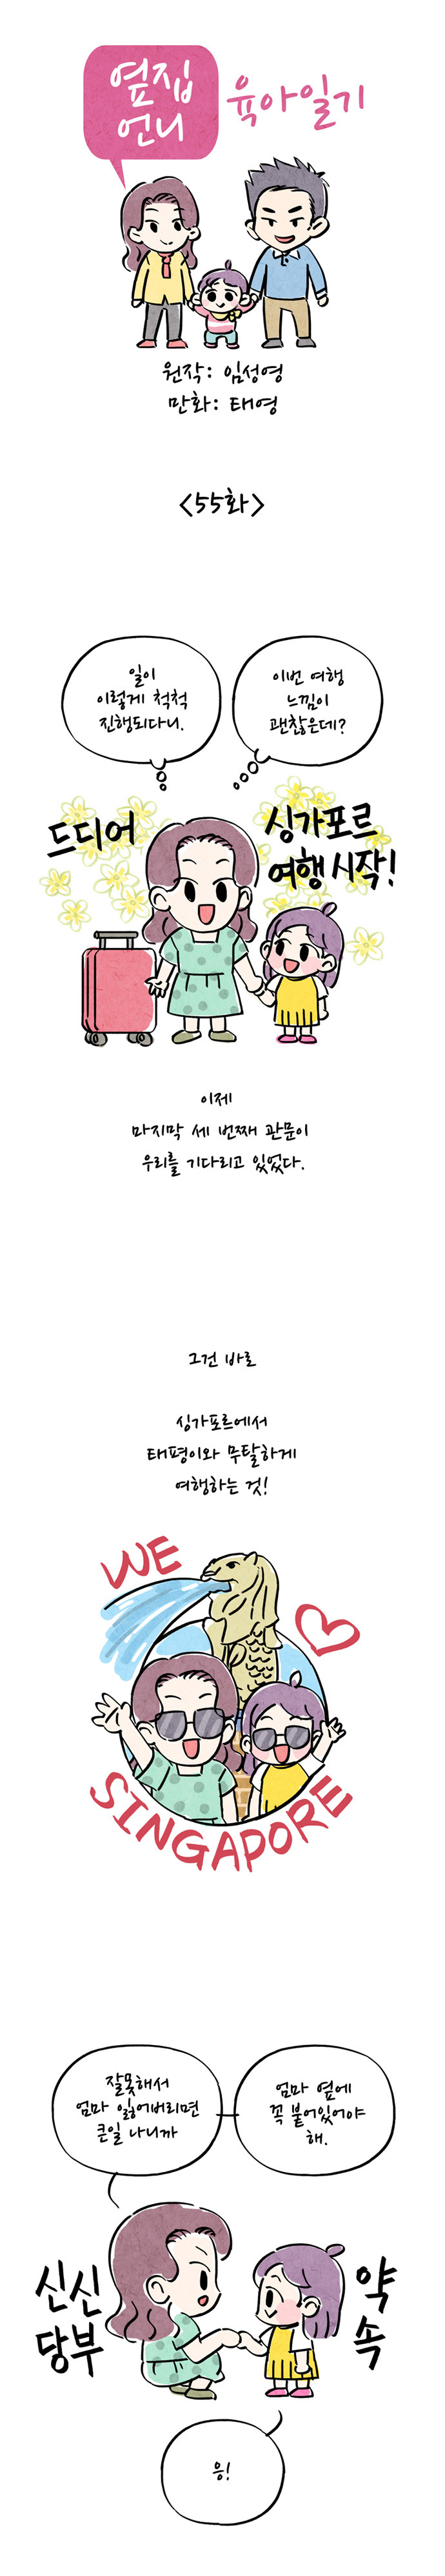 옆집
언니
육아일기
원작: 임성영
만화: 태영
<55화>
일이
이렇게 척척
진행되다니.
이번 여행
느낌이
괜찮은데?
드디어
싱가포르
여행 시작!
이제
마지막 세 번째 관문이
우리를 기다리고 있었다.
그건 바로
싱가포르에서
태평이와 무탈하게
여행하는 것!
WE
SINGAPORE
잘못해서
엄마 잃어버리면
큰일 나니까
엄마 옆에
꼭 붙어있어야
해.
신신
당부
약
속
응!